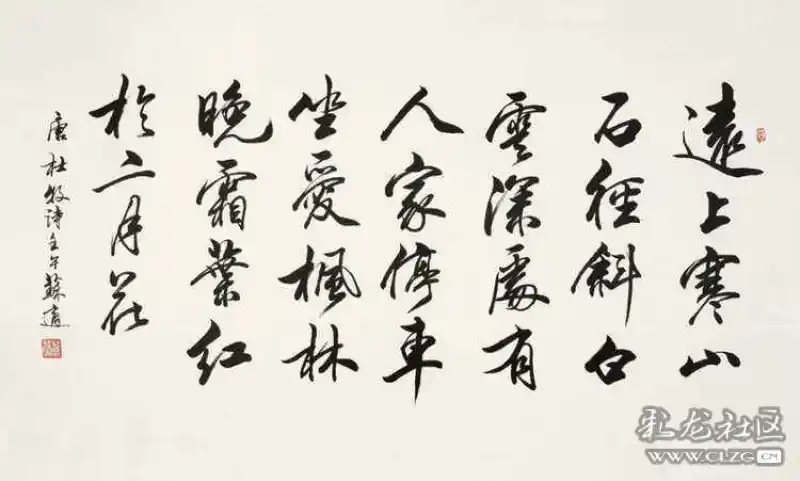 遠上寒山
石徑斜白
雲深處有
人家停車
坐愛楓林
晚霜葉紅
於二月花
唐杜牧詩壬午蘇適
彩龙社区
WWW.CLZG.CN